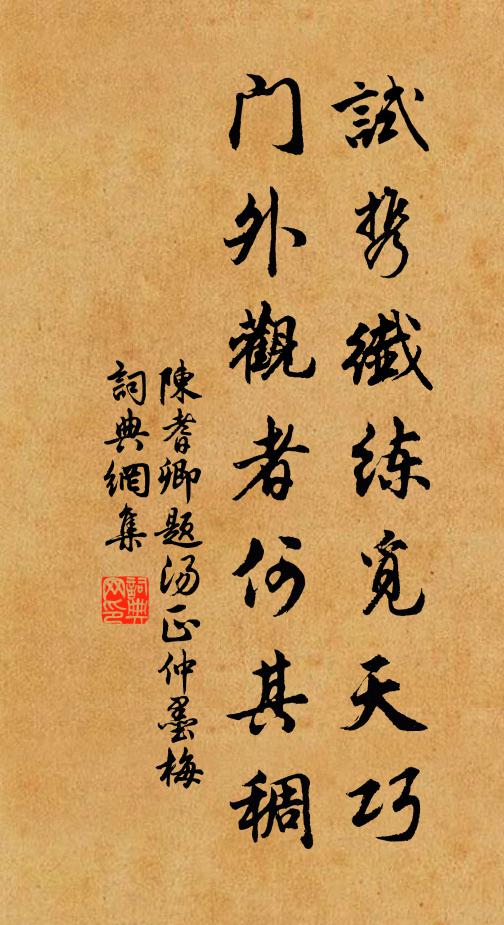 試携纖练覓天巧
门外觀者何其稠
陳耆卿題汤正仲墨梅
詞典網集
詞典网印